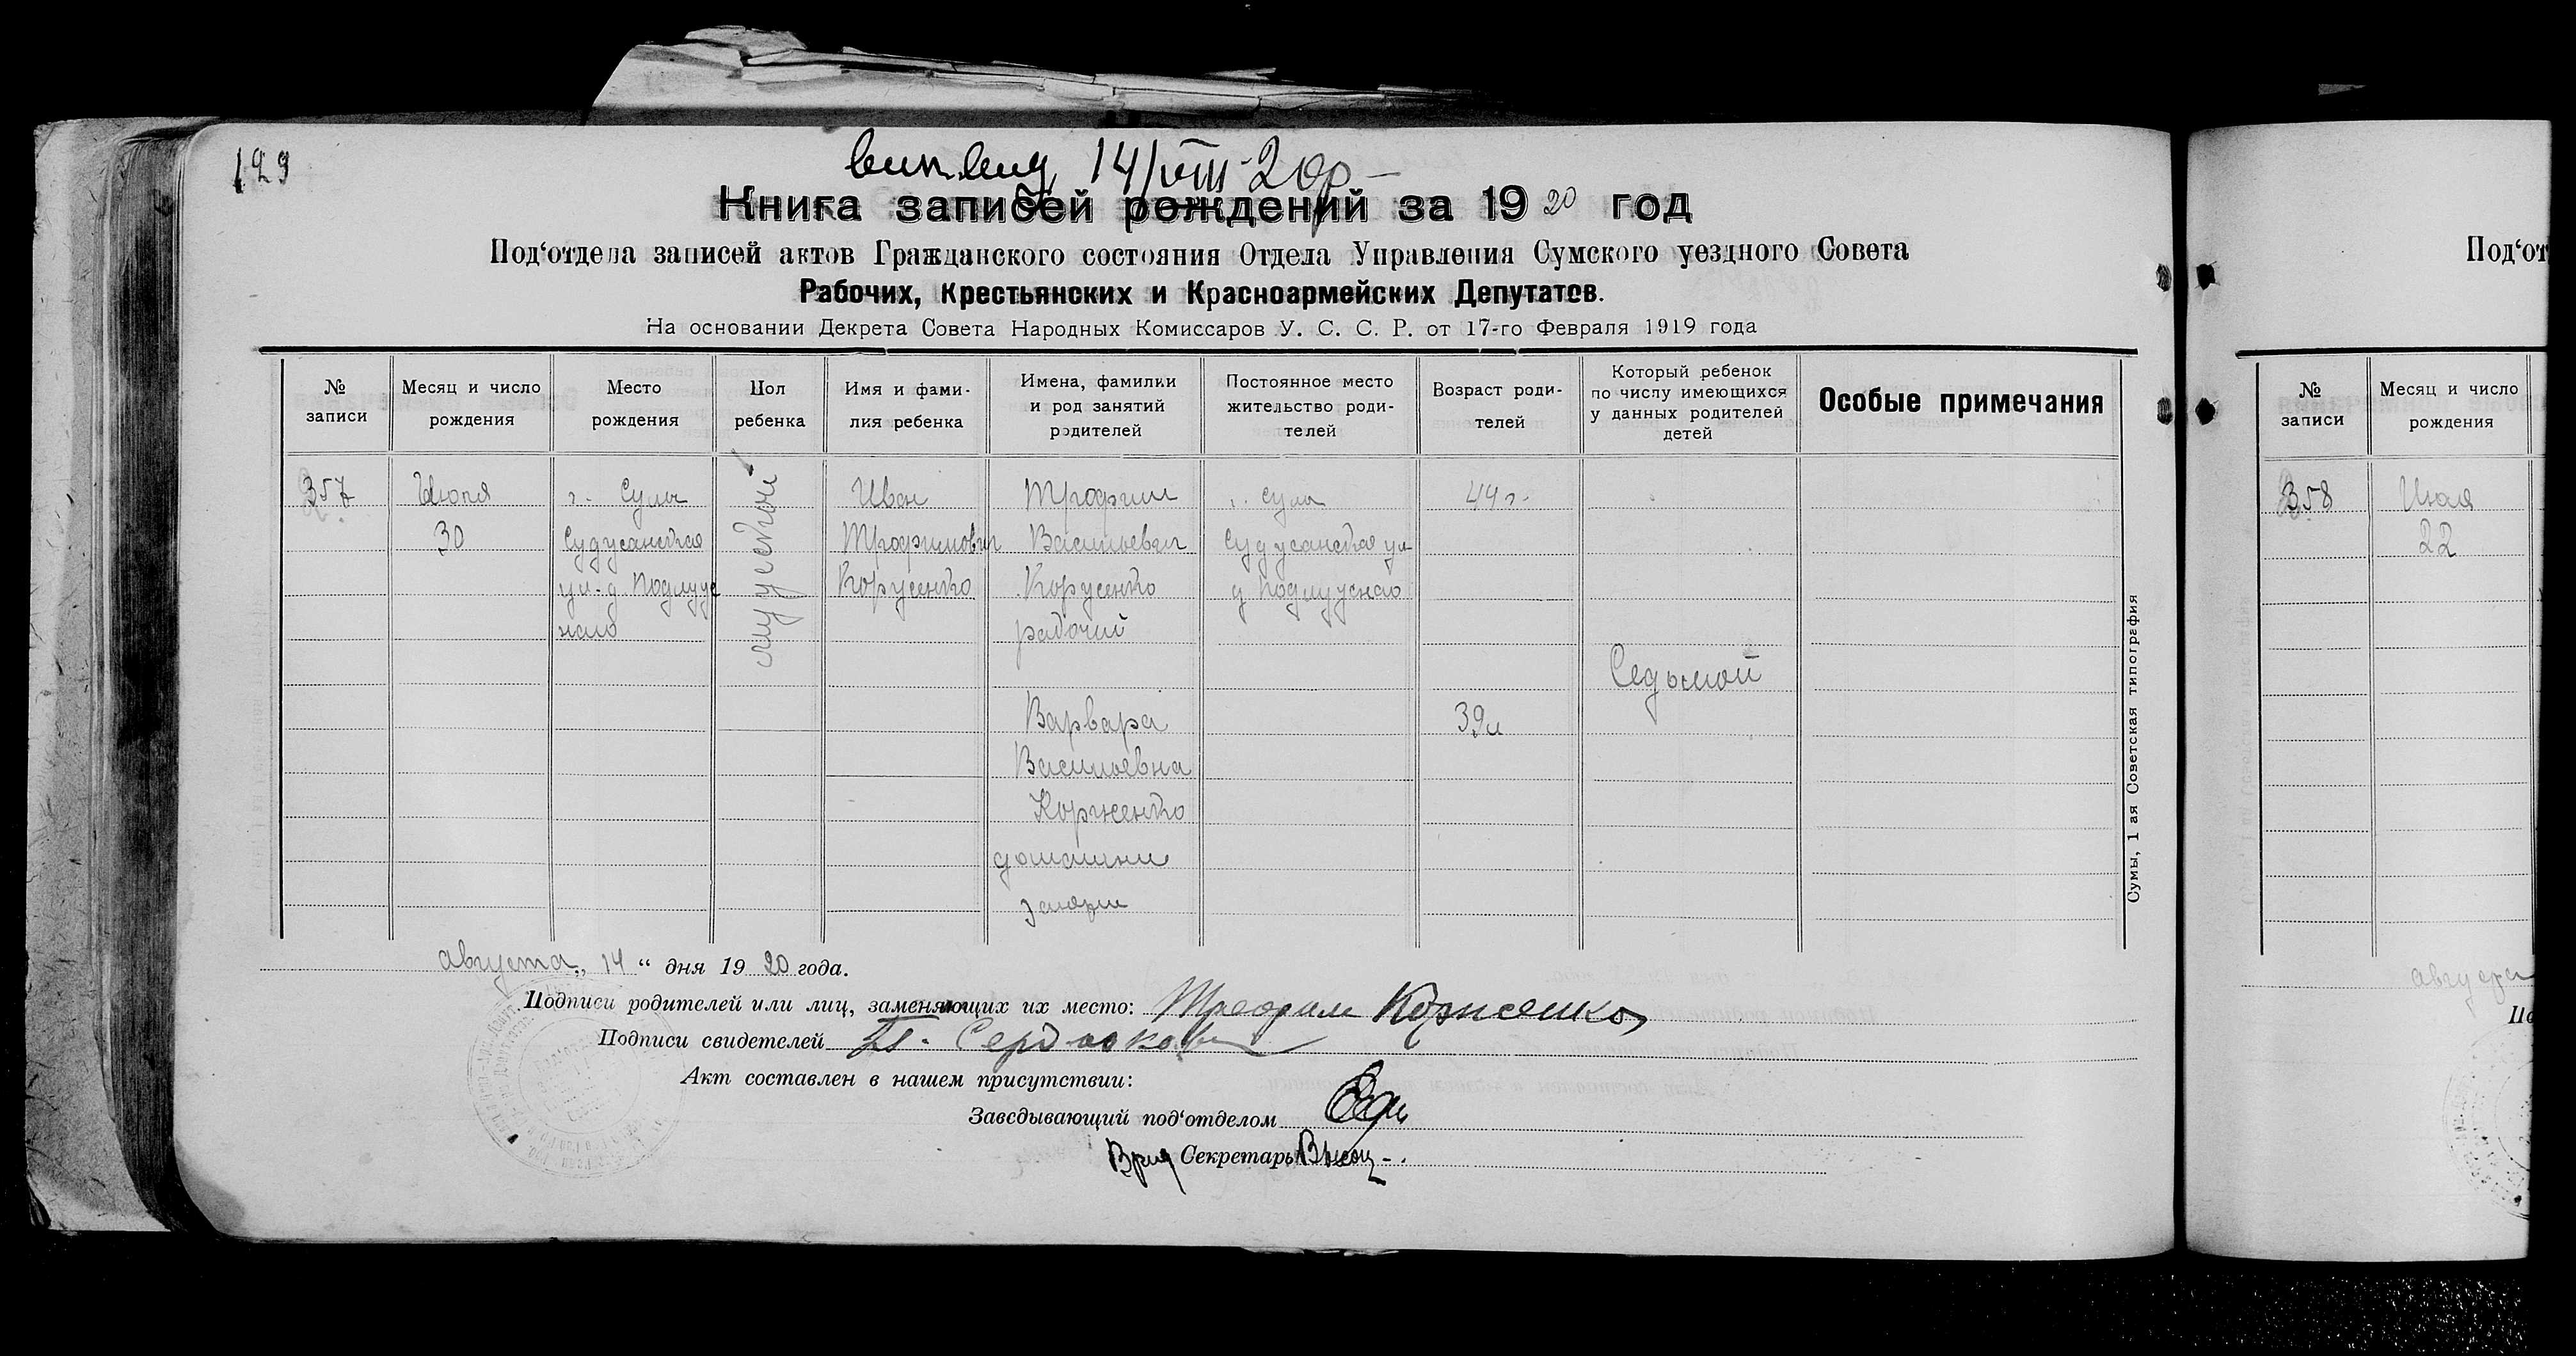 129
14/VIII-20р
Книга записей рождений за 1920 год
Под‘отдела записей актов Гражданского состояния Отдела Управления Сумского уездного Совета
Рабочих, Крестьянских и Красноармейских Депутатов.
На основании Декрета Совета Народных Комиссаров У. С. С. Р. от 17-го Февраля 1919 года
№ записи
Месяц и число рождения
Место рождения
Пол ребенка
Имя и фамилия ребенка
Имена, фамилии и род занятий родителей
Постоянное место жительство родителей
Возраст родителей
Который ребенок по числу имеющихся у данных родителей детей
Особые примечания
357
Июля
30
г. Сумы
ул. д. Подлуж
ного
мужской
Иван
Трофимович
Корженко
Трофим
Васильевич
Корженко
рабочий
Варвара
Васильевна
Корженко
домашни
г. Сумы
44 г.
39 л
Седьмой
августа „ 14 “ дня 1920 года.
Подписи родителей или лиц, заменяющих их место: Трофим Корженко
Подписи свидетелей
Акт составлен в нашем присутствии:
Заведывающий под‘отделом
Врид Секретарь
Сумы, 1 ая Советская типография
Под‘от
№ записи
Месяц и число рождения
358
Июля
22
августа
По